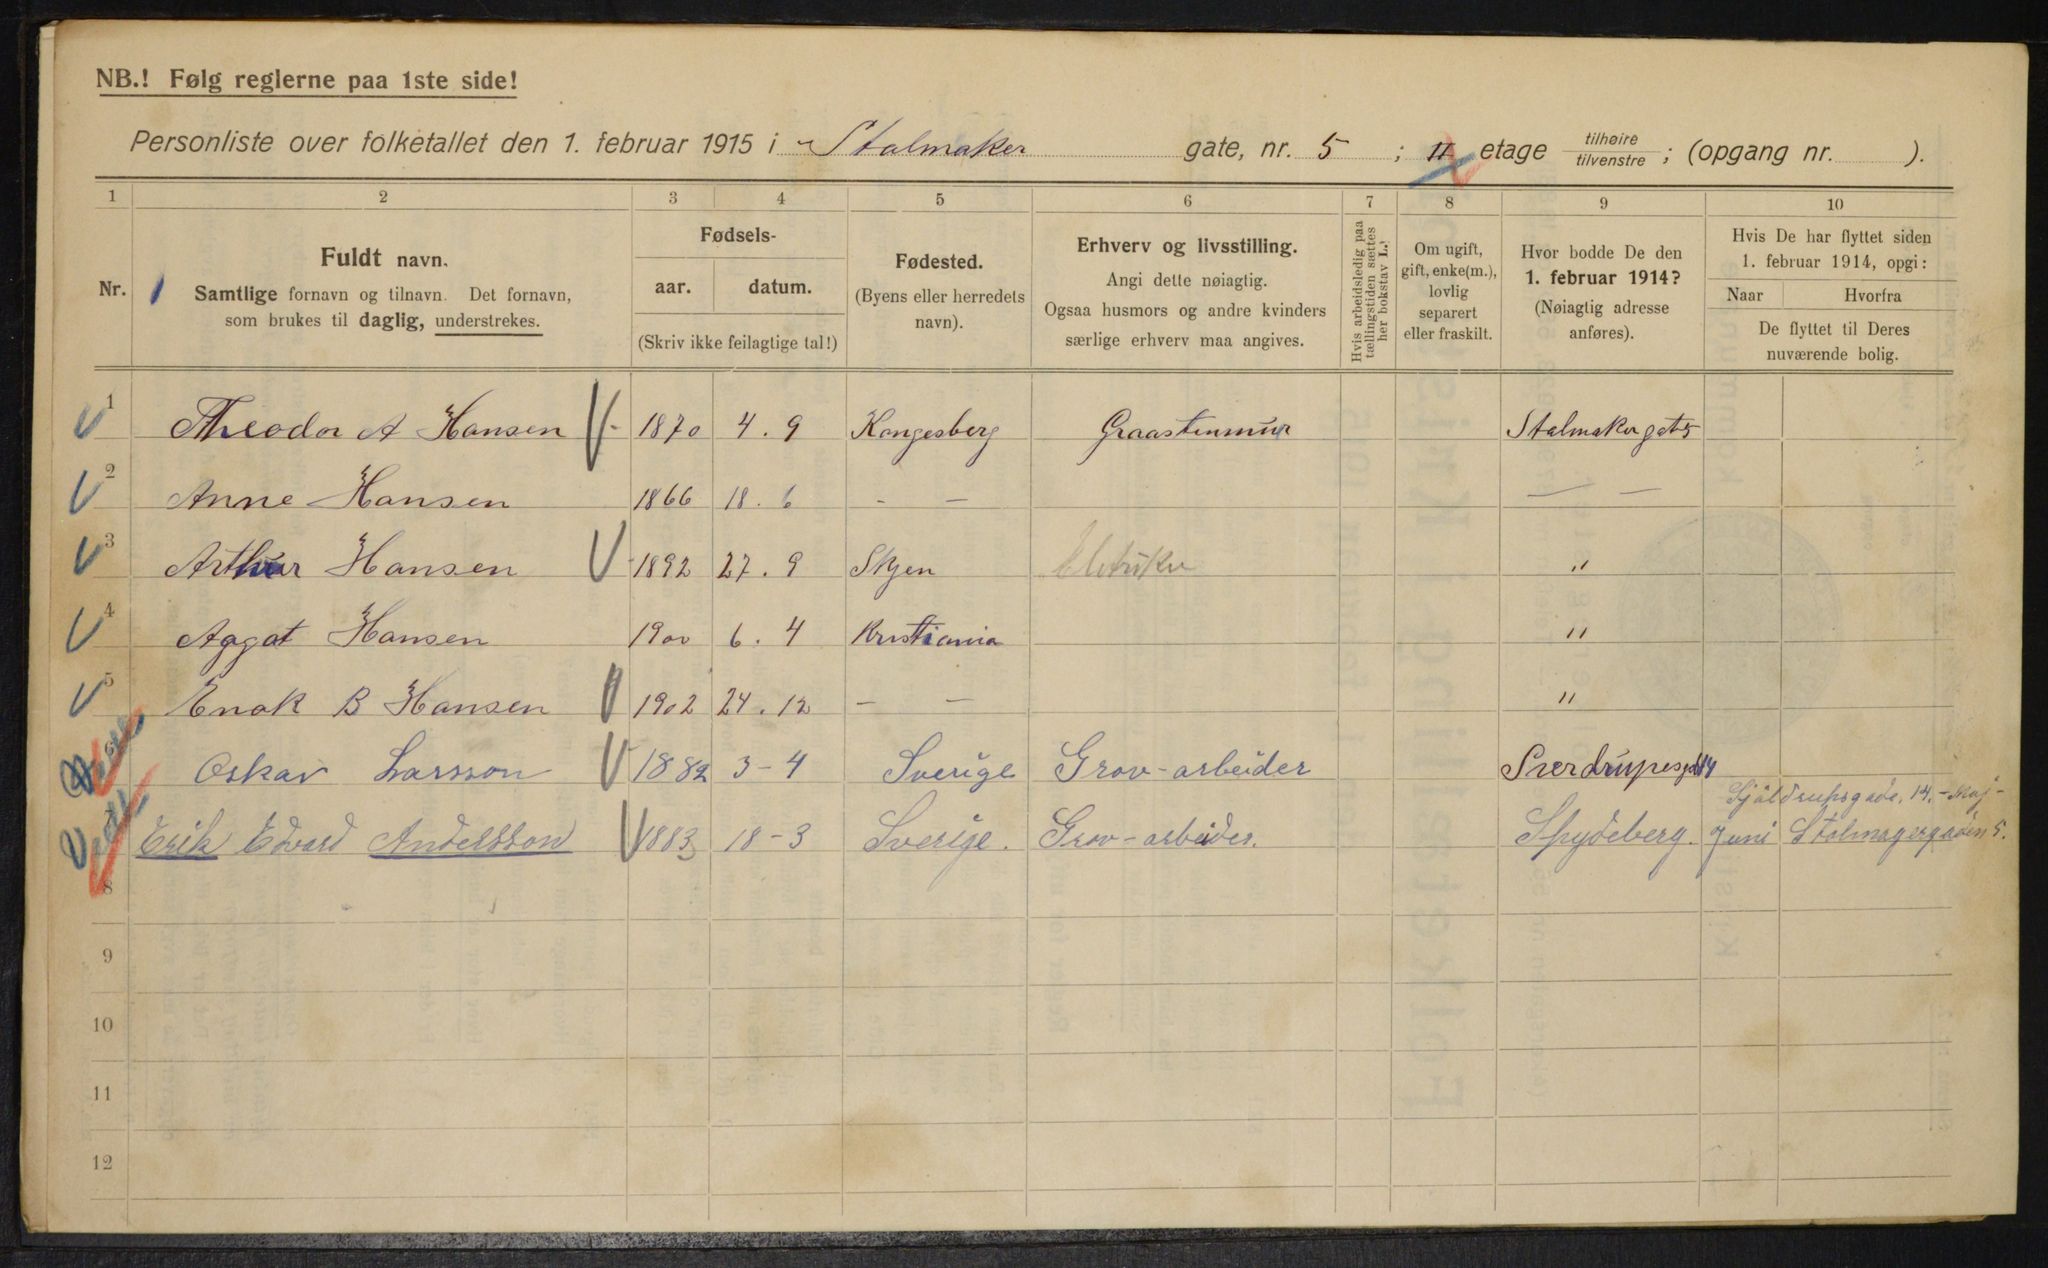 NB.! Følg reglerne paa 1ste side!
Personliste over folketallet den 1. februar 1915 i Stalmaker gate, nr. 5 ; II etage tilhøire tilvenstre ; (opgang nr. ).
1 2 3 4 5 6 7 8 9 10
Nr.
1
Fuldt navn.
Samtlige fornavn og tilnavn. Det fornavn,
som brukes til daglig, understrekes.
Fødsels-
aar. datum.
(Skriv ikke feilagtige tal!)
Fødested.
(Byens eller herredets
navn).
Erhverv og livsstilling.
Angi dette nøiagtig.
Ogsaa husmors og andre kvinders
særlige erhverv maa angives.
Hvis arbeidsledig paa
tællingstiden sættes
her bokstav L.
Om ugift,
gift, enke(m.),
lovlig
separert
eller fraskilt.
Hvor bodde De den
1. februar 1914?
(Nøiagtig adresse
anføres).
Hvis De har flyttet siden
1. februar 1914, opgi:
Naar Hvorfra
De flyttet til Deres
nuværende bolig.
1 Theodor A Hansen 1870 4 . 9 Kongesberg Graastenmur Stalmaker gat 5
2 Anne Hansen 1866 18 . 6 - - - -
3 Arthur Hansen 1892 27 . 9 Skjen "
4 Aagot Hansen 1900 6 . 4 Kristiania "
5 Enok B Hansen 1902 24 . 12 - - "
6 Oskar Larsson 1882 3 - 4 Sverige Grov-arbeider Sverdrupesgd 14
Själdrupsgade. 14. - Maj -
7 Erik Edvard Andelsson 1883 18 - 3 Sverige. Grov-arbeider. Spydeberg. Juni Stalmagergaden 5.
8
9
10
11
12